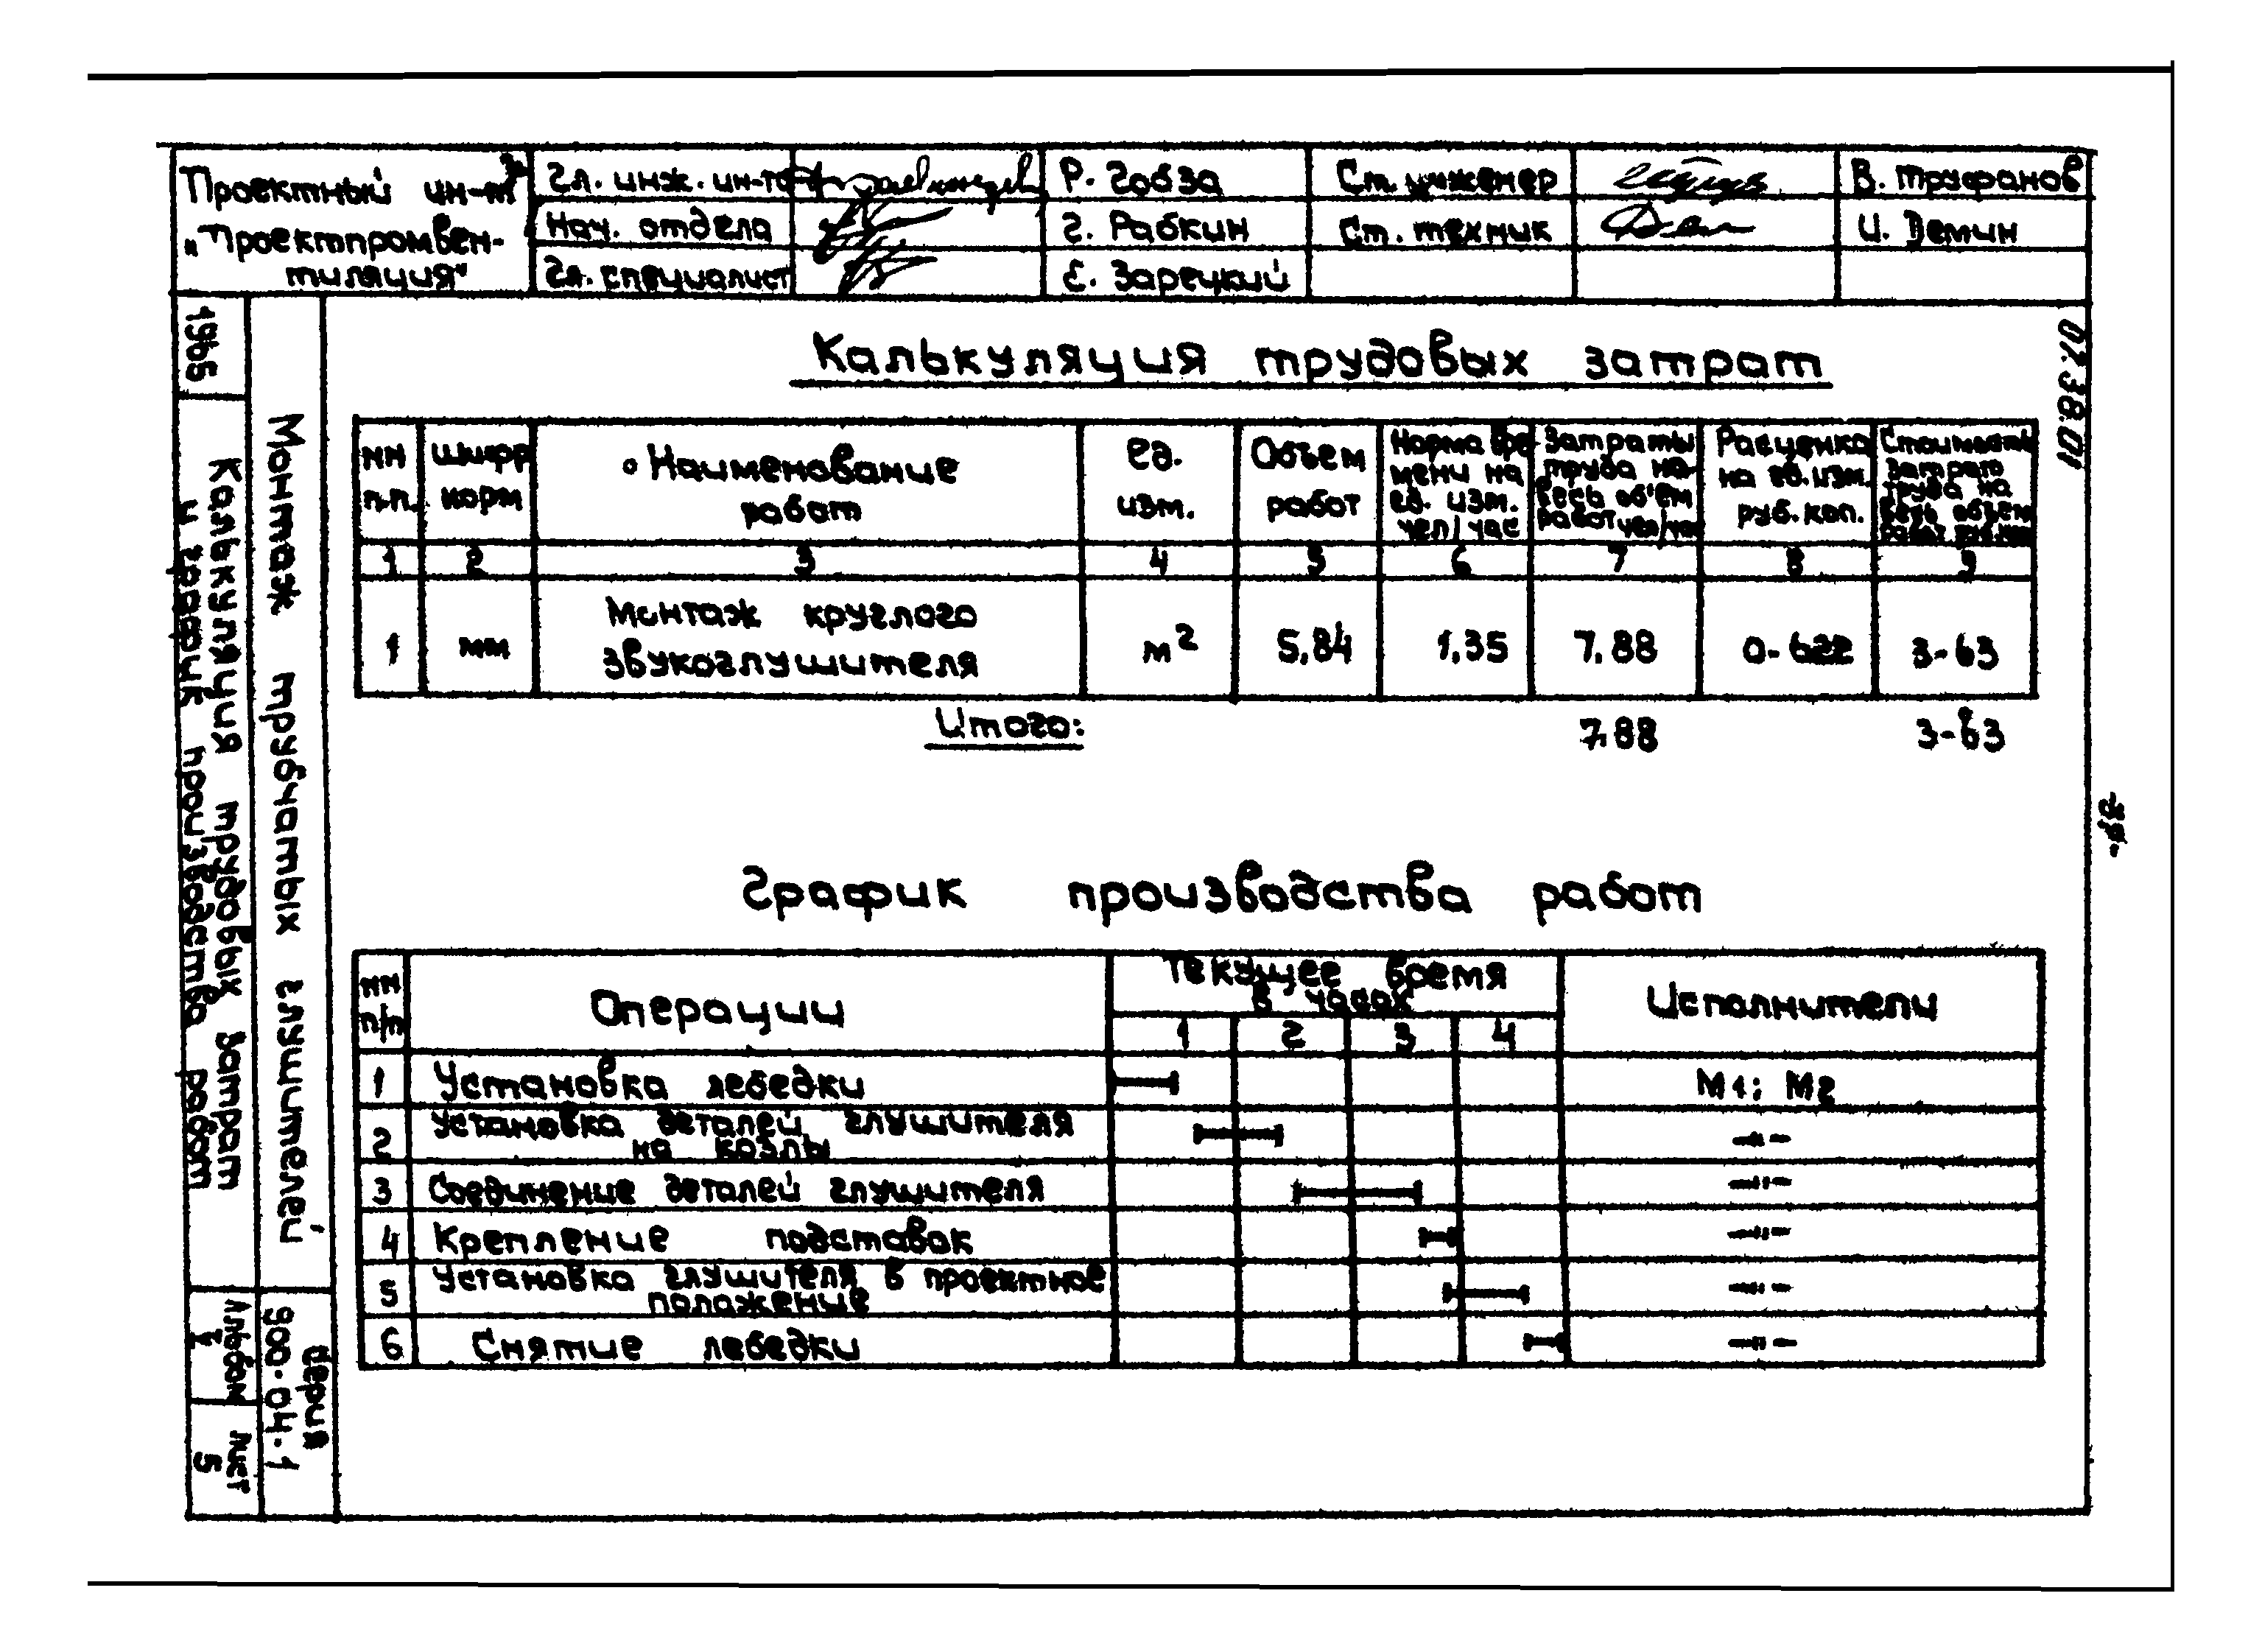 Проектный ин-т
"Проектпромвен-
тиляция"
Гл. инж. ин-та
Р. Гобза
Ст. инженер
В. Труфанов
Нач. отдела
Г. Рабкин
Ст. техник
И. Демин
Гл. специалист
Е. Зарецкий
1965
07.38.01
Калькуляция трудовых затрат
и график производства работ
Монтаж трубчатых глушителей
Альбом
V
Лист
5
Серия
900-04-1
Калькуляция трудовых затрат
НН
п.п.
Шифр
норм
Наименование
работ
Ед.
изм.
Объем
работ
Норма вре-
мени на
ед. изм.
чел/час
Затраты
труда на
весь объем
работ чел/час
Расценка
на ед. изм.
руб. коп.
Стоимость
затрат
труда на
весь объем
работ
1 2 3 4 5 6 7 8 9
1 мм Монтаж круглого
звукоглушителя м² 5,84 1,35 7,88 0-622 3-63
Итого: 7,88 3-63
График производства работ
НН
п/п
Операции
Текущее время
в часах
1 2 3 4
Исполнители
1 Установка лебедки М1; М2
2 Установка деталей глушителя
на козлы -"-
3 Соединение деталей глушителя -"-
4 Крепление подставок -"-
5 Установка глушителя в проектное
положение -"-
6 Снятие лебедки -"-